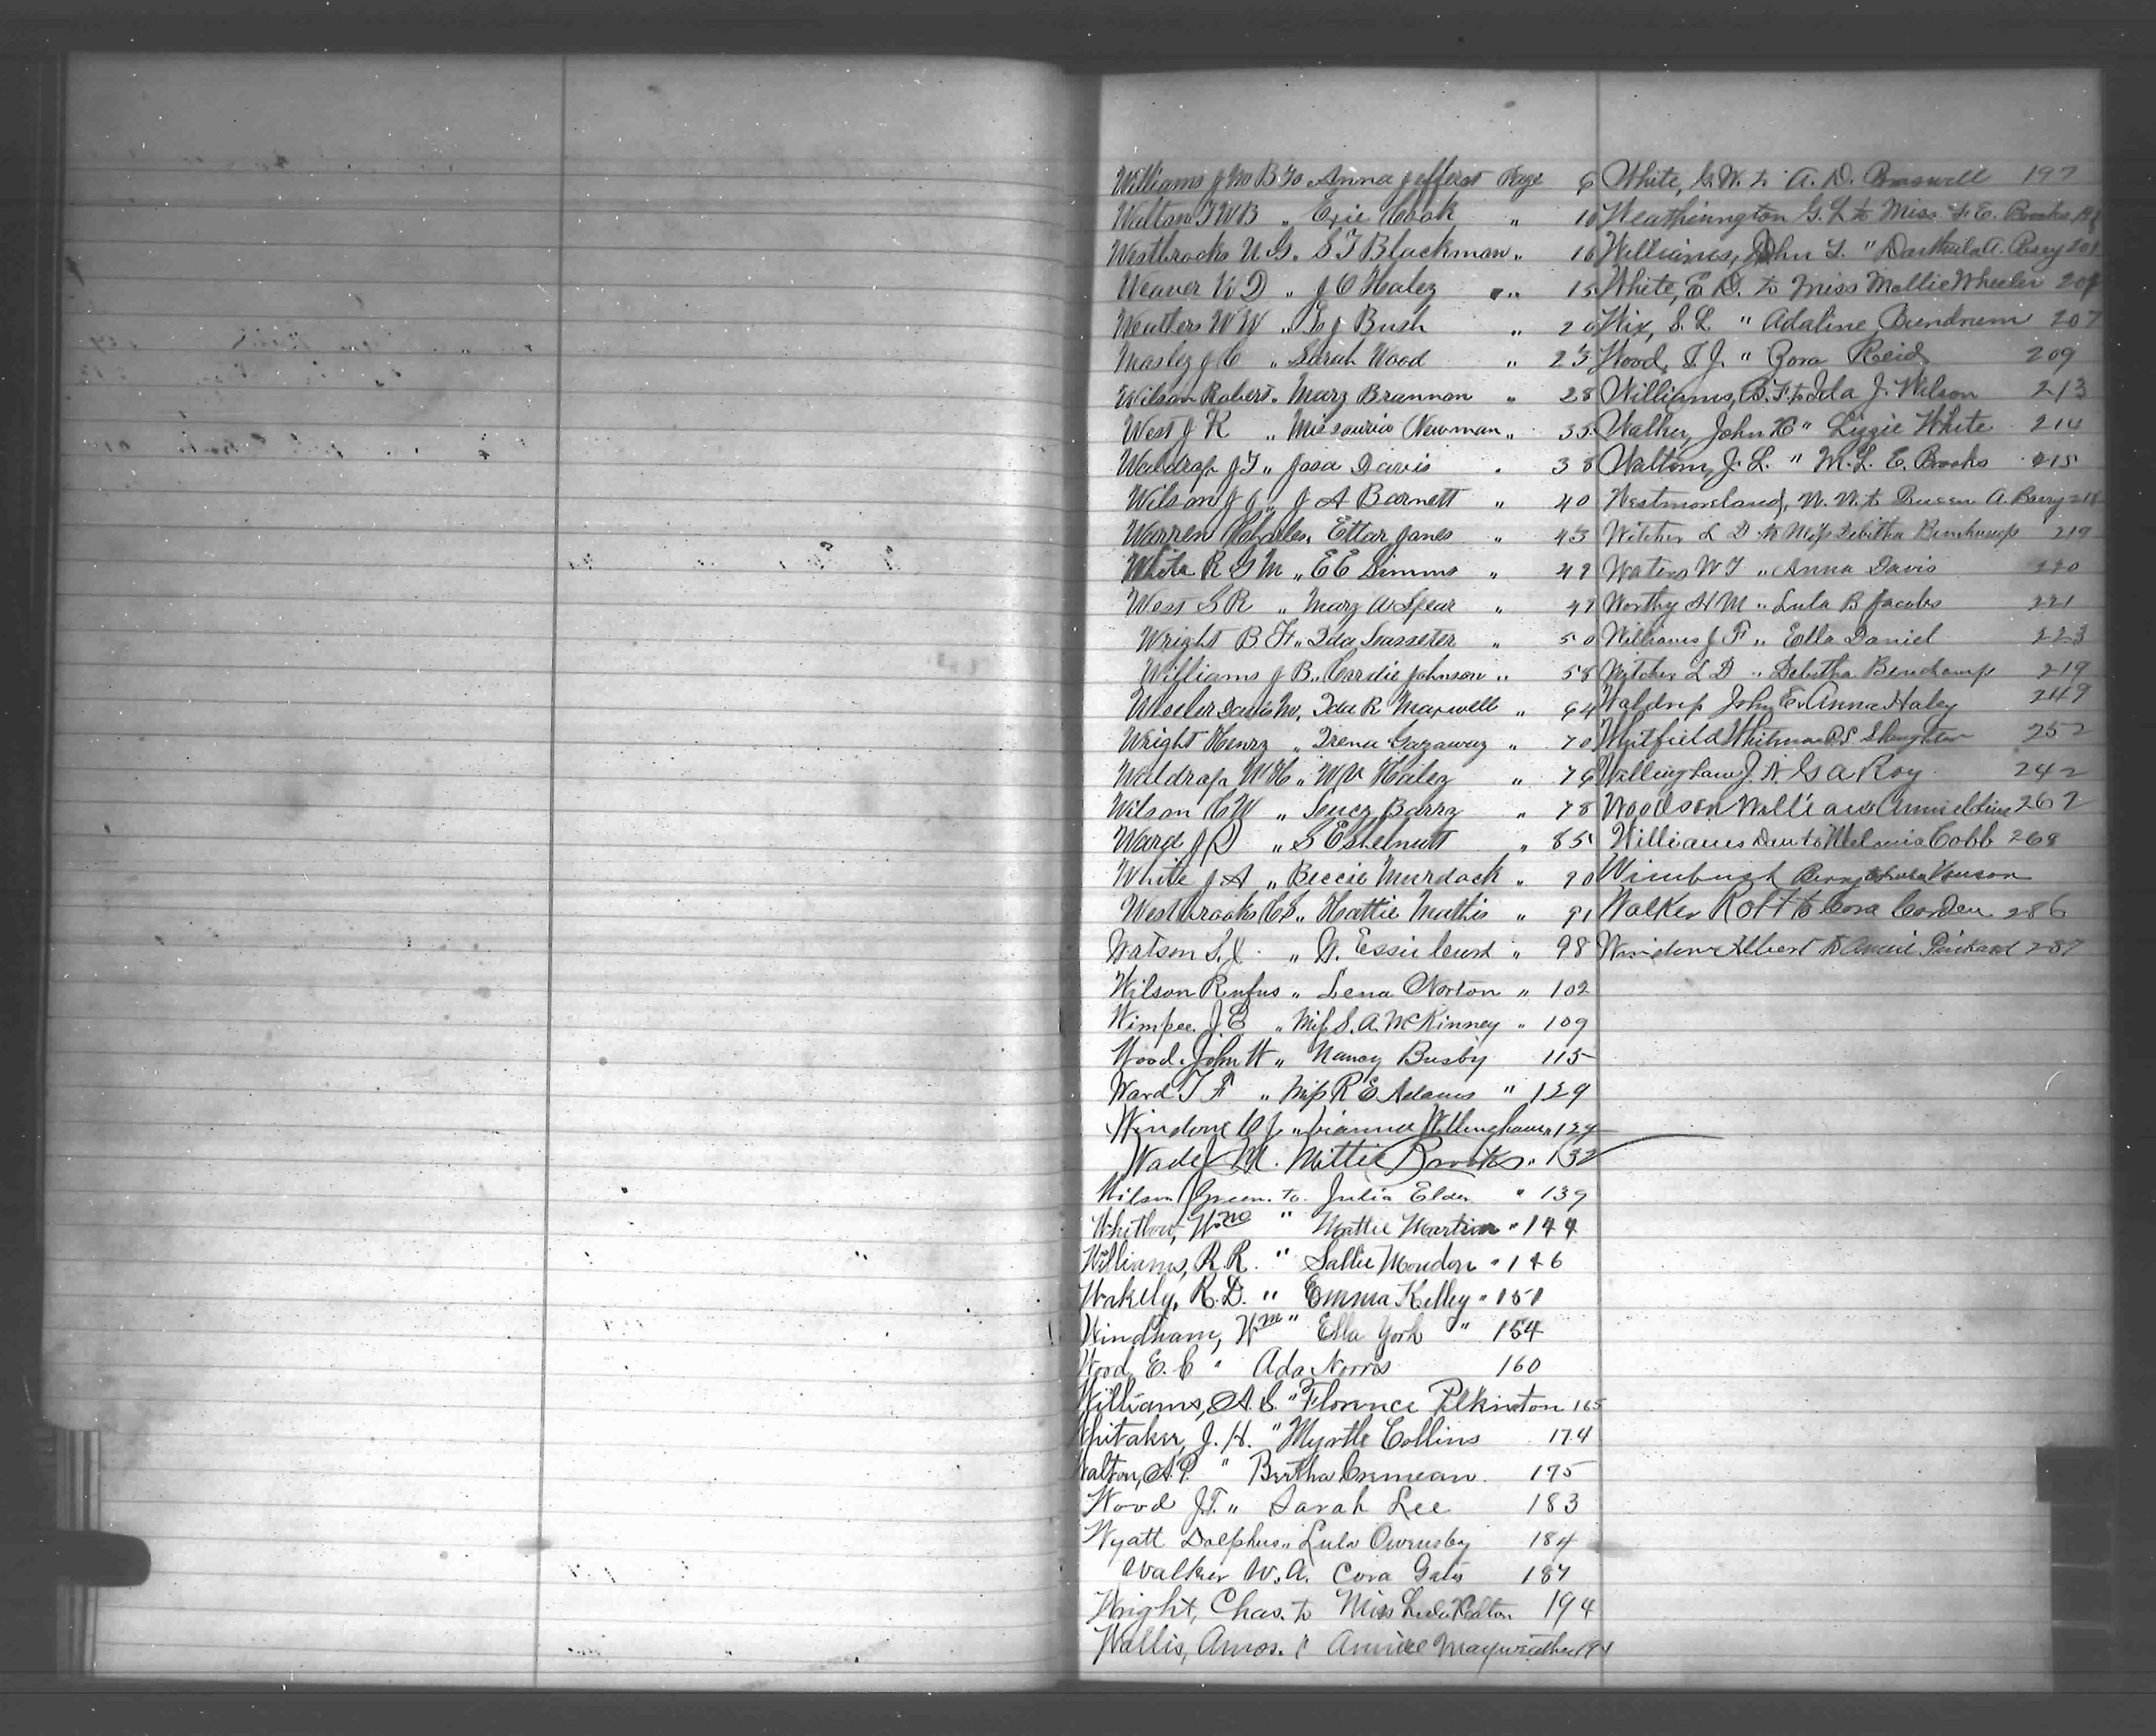 Williams Jno B To Anna Jefferst Page 6
Walton T W B „ Exie Cook „ 10
Westbrooks N G „ S J Blackman „ 16
Weaver W D „ J C Haley „ 15
Weathers W W „ J Bush „ 20
Mosley J C „ Sarah Wood „ 23
Wilson Robert „ Mary Brannon „ 28
West J K „ Missouria Newman „ 35
Waldrap J T „ Josa Davis „ 38
Wilson J J „ J A Barnett „ 40
Warren Charles „ Ettar Jones „ 43
White R G M „ E E Simms „ 49
West S R „ Mary A Spear „ 49
Wright B F „ Ida Lasseter „ 50
Williams J B „ Cordie Johnson „ 58
Wheeler Davis M „ Ida R Maxwell „ 64
Wright Henry „ Irena Gazaway „ 70
Waldrap W H „ M V Haley „ 76
Wilson C W „ Lucy Barry „ 78
Ward J D „ S E Shelnutt „ 85
White J A „ Beccie Murdock „ 90
Westbrooks C S „ Hattie Mathis „ 91
Watson S. J. „ N. Essie „ 98
Wilson Rufus „ Lena Norton „ 102
Wimpee J. E „ Miss S. A. McKinney „ 109
Wood John W „ Nancy Busby 115
Ward T F „ Miss R E Adams " 129
C J „ Willingham „ 129
Wade J M. Mittie Brooks „ 132
Wilson Green. to. Julia Elder " 139
Whitlow, Wm " Mattie Martin " 144
Williams, R. R. " Sallie " 146
Wakely, R. D. " Emma Kelley " 151
Windham, Wm " Ella York " 154
Wood E. C " Ada Norris 160
Williams, A. S. " Florence Pilkinton 165
Whitaker, J. H. " Myrtle Collins 174
Walton, A. P. " Bertha 175
Wood J. T. „ Sarah Lee 183
Wyatt Dolphus „ Lula Owensby 184
Walker W. A. Cora Gates 187
Wright, Chas. to Miss Lula 194
Wallis, Amos. " Annice Mayweather 194
White, G. W. to A. D. Braswell 197
Weathington G. L to Miss F. E. Brooks
Williams, John L. " A. Perry 201
White, E. D. to Miss Mollie Wheeler 204
Wix, S. L. " Adaline Bundrum 207
Wood, T. J. " Zora Reid 209
Williams, B. F. to Ida J. Wilson 213
Walker, John H " Lizzie White 214
Walton, J. L. " M. L. E. Brooks 215
Westmoreland, W. W. to A. Barry 218
Witcher L D to Miss Debitha Benchamp 219
Waters W T „ Anna Davis 220
Worthy H M „ Lula B Jacobs 221
Williams J F „ Ella Daniel 223
Witcher L D „ Debitha Benchamp 219
Waldrep John E. Anna Haley 249
Whitfield Slaughter 252
Willingham J. N Roy 242
Woodson William 262
Williams Dan to Cobb 268
Wimbush
Walker Robt to Cora Corden 286
Albert to Annie Pinkard 287